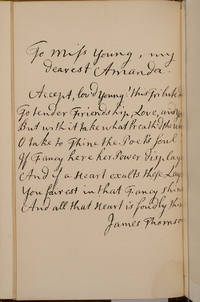 To Miss Young, my
dearest Amanda.
Accept, lov'd Young! this Tribute
To tender Friendship, Love, and
But with it take what breath'd the
O take to Thine the Poets Soul
If Fancy here her Power Display
And if a Heart exalts these Lays
You fairest in that Fancy shine
And all that Heart is fondly thine
James Thomson